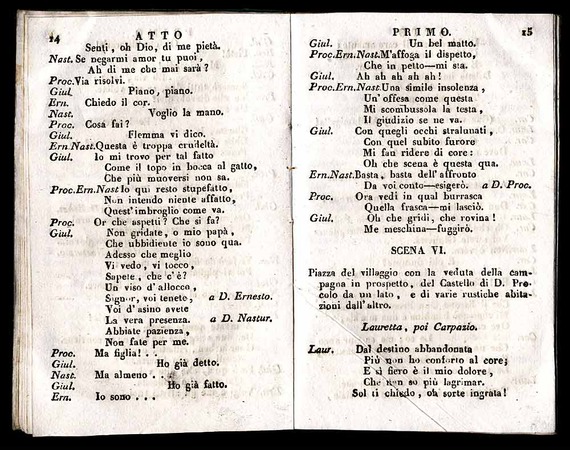 14
ATTO
Senti, oh Dio, di me pietà.
Nast. Se negarmi amor tu puoi,
Ah di me che mai sarà?
Proc. Via risolvi.
Giul. Piano, piano.
Ern. Chiedo il cor.
Nast. Voglio la mano.
Proc. Cosa fai?
Giul. Flemma vi dico.
Ern. Nast. Questa è troppa crudeltà.
Giul. Io mi trovo per tal fatto
Come il topo in bocca al gatto,
Che più muoversi non sa.
Proc. Ern. Nast. Io qui resto stupefatto,
Non intendo niente affatto,
Quest'imbroglio come va.
Proc. Or che aspetti? Che si fa?
Giul. Non gridate, o mio papà,
Che ubbidiente io sono qua.
Adesso che meglio
Vi vedo, vi tocco,
Sapete, che c'è?
Un viso d'allocco,
Signor, voi tenete, a D. Ernesto.
Voi d'asino avete
La vera presenza. a D. Nastur.
Abbiate pazienza,
Non fate per me.
Proc. Ma figlia! . .
Giul. Ho già detto.
Nast. Ma almeno . . .
Giul. Ho già fatto.
Ern. Io sono . . .
PRIMO.
15
Giul. Un bel matto.
Proc. Ern. Nast. M'affoga il dispetto,
Che in petto—mi sta.
Giul. Ah ah ah ah ah!
Proc. Ern. Nast. Una simile insolenza,
Un'offesa come questa
Mi scombussola la testa,
Il giudizio se ne va.
Giul. Con quegli occhi stralunati,
Con quel subito furore
Mi fan ridere di core:
Oh che scena è questa qua.
Ern. Nast. Basta, basta dell'affronto
Da voi conto—esigerò. a D. Proc.
Proc. Ora vedi in qual burrasca
Quella frasca—mi lasciò.
Giul. Oh che gridi, che rovina!
Me meschina—fuggirò.
SCENA VI.
Piazza del villaggio con la veduta della cam-
pagna in prospetto, del Castello di D. Pro-
colo da un lato, e di varie rustiche abita-
zioni dall'altro.
Lauretta, poi Carpazio.
Laur. Dal destino abbandonata
Più non ho conforto al core;
E sì fiero è il mio dolore,
Che non so più lagrimar.
Sol ti chiedo, oh sorte ingrata!